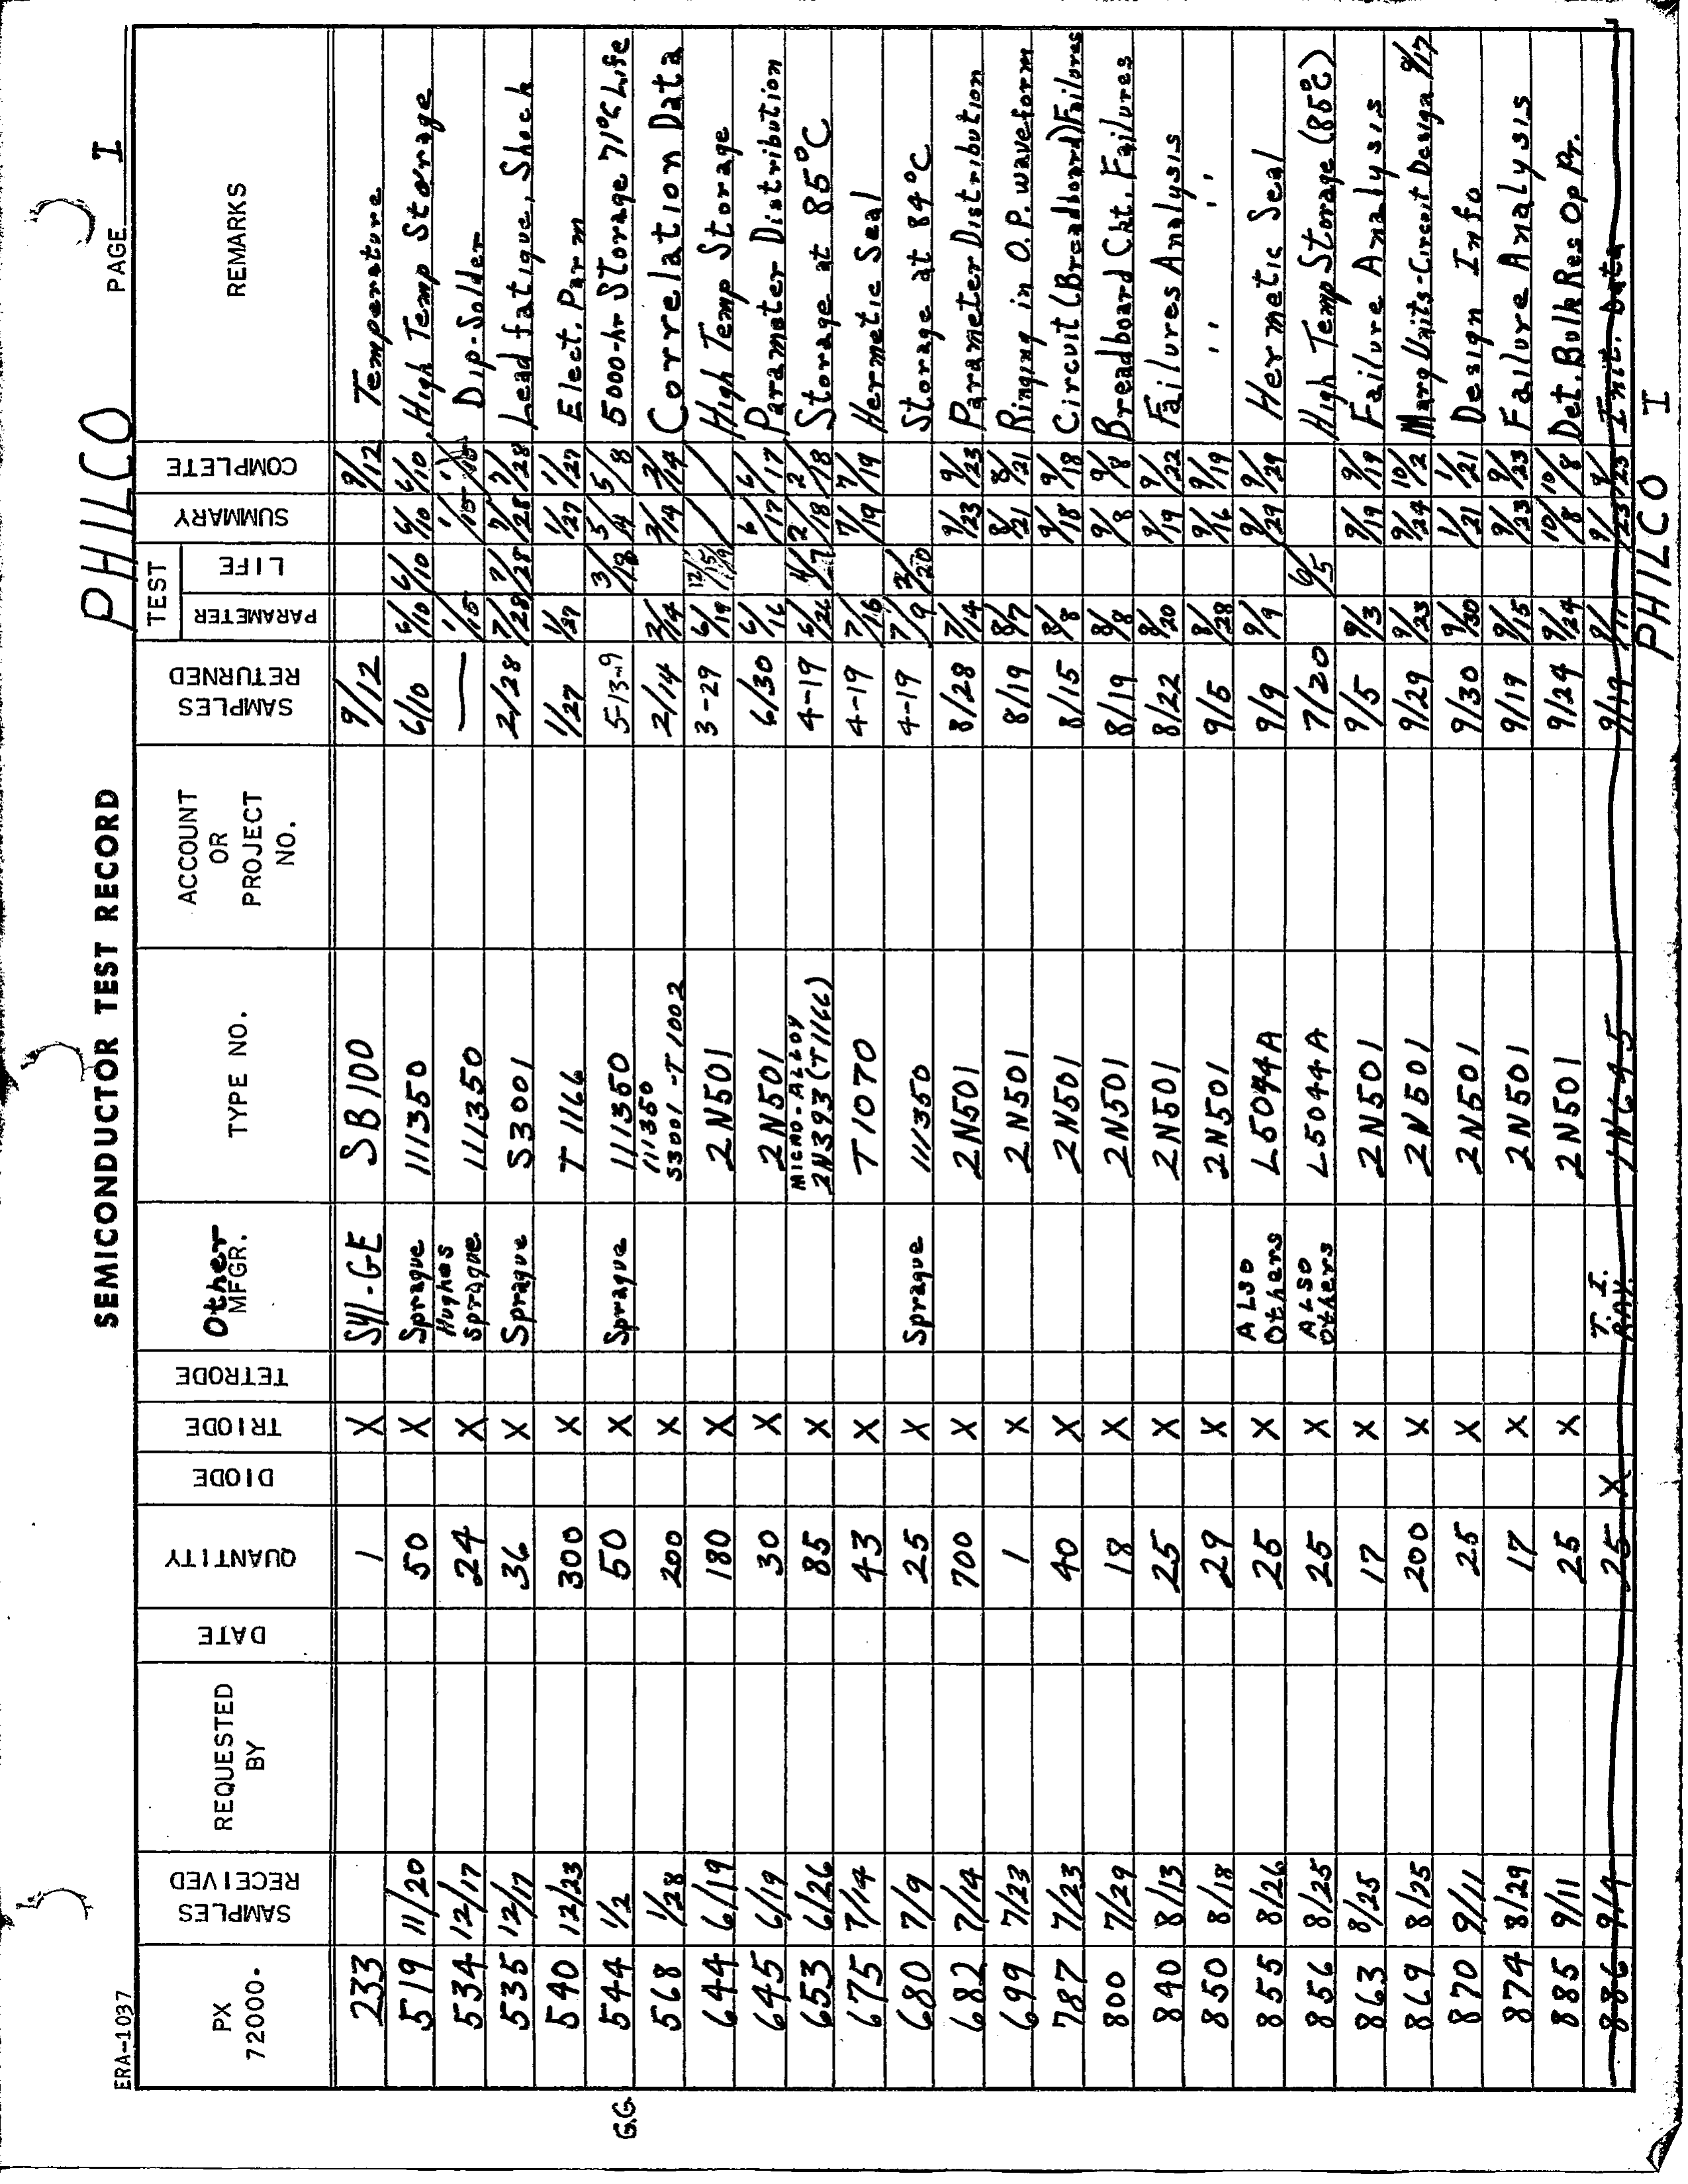 ERA-1037
SEMICONDUCTOR TEST RECORD
PHILCO
PAGE I
PX 72000. SAMPLES RECEIVED REQUESTED BY DATE QUANTITY DIODE TRIODE TETRODE Other MFGR. TYPE NO. ACCOUNT OR PROJECT NO. SAMPLES RETURNED TEST PARAMETER LIFE SUMMARY COMPLETE REMARKS
233 1 X Syl-GE SB100 9/12 9/12 Temperature
519 11/20 50 X Sprague 111350 6/10 6/10 6/10 6/10 6/10 High Temp Storage
534 12/17 24 X Hughes Sprague 111350 — 1/15 1/15 1/15 Dip-Solder
535 12/17 36 X Sprague S3001 2/28 7/28 7/28 7/28 7/28 Lead fatique, Shock
540 12/23 300 X T1166 1/27 1/27 1/27 1/27 Elect. Parm
G.G. 544 1/2 50 X Sprague 111350 5-13-9 3/18 5/4 5/8 5000-hr Storage 71°C Life
568 1/28 200 X 111350 S3001-T1002 2/14 2/14 2/14 2/14 Correlation Data
644 6/19 180 X 2N501 3-29 6/19 / / High Temp Storage
645 6/19 30 X 2N501 6/30 6/16 6/17 6/17 Parameter Distribution
653 6/26 85 X MICRO-ALLOY 2N393 (T1166) 4-19 6/26 4/7 2/18 2/18 Storage at 85°C
675 7/14 43 X T1070 4-19 7/16 7/19 7/19 Hermetic Seal
680 7/9 25 X Sprague 111350 4-19 7/9 2/20 Storage at 84°C
682 7/14 700 X 2N501 8/28 7/14 9/23 9/23 Parameter Distribution
699 7/23 1 X 2N501 8/19 8/7 8/21 8/21 Ringing in O.P. waveform
787 7/23 40 X 2N501 8/15 8/8 9/18 9/18 Circuit (Breadboard) Failures
800 7/29 18 X 2N501 8/19 8/8 9/8 9/8 Breadboard Cht. Failures
840 8/13 25 X 2N501 8/22 8/20 9/19 9/22 Failures Analysis
850 8/18 29 X 2N501 9/5 8/28 9/16 9/19 " "
855 8/26 25 X ALSO Others L5044A 9/9 9/9 9/29 9/29 Hermetic Seal
856 8/25 25 X ALSO Others L5044A 7/20 6/5 High Temp Storage (85°C)
863 8/25 17 X 2N501 9/5 9/3 9/19 9/19 Failure Analysis
869 8/25 200 X 2N501 9/29 9/23 9/24 10/2 Marg Units-Circuit Design 9/17
870 9/11 25 X 2N501 9/30 9/30 1/21 1/21 Design Info
874 8/29 17 X 2N501 9/19 9/15 9/23 9/23 Failure Analysis
885 9/11 25 X 2N501 9/24 9/24 10/8 10/8 Det. Bulk Res Op Pt.
886 9/4 25 X T.I. RAY. 1N645 9/19 9/11 9/23 9/23 Init. Data
PHILCO I